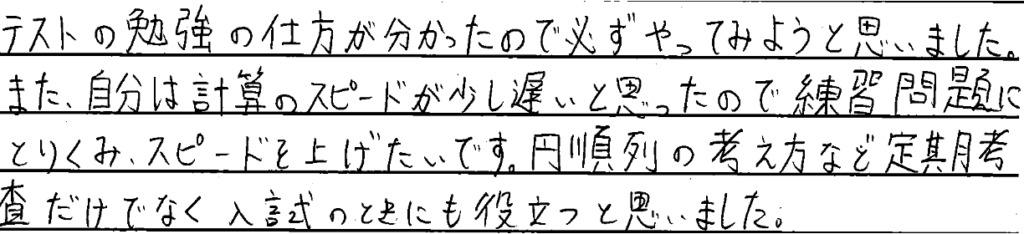 テストの勉強の仕方が分かったので必ずやってみようと思いました。
また、自分は計算のスピードが少し遅いと思ったので練習問題に
とりくみ、スピードを上げたいです。円順列の考え方など定期考
査だけでなく入試のときにも役立つと思いました。